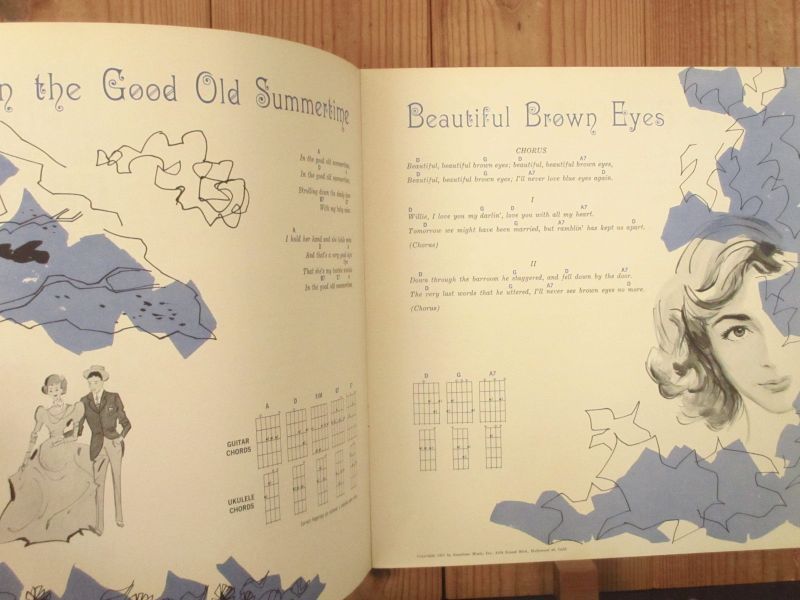 n the Good Old Summertime
A
In the good old summertime,
D A
In the good old summertime,
Strolling down the shady lane
B7 E7
With my baby mine.
A
I hold her hand and she holds mine
D A
And that's a very good sign
That she's my tootsie wootsie
B7 E7 A
In the good old summertime.
A D
GUITAR
CHORDS
UKULELE
CHORDS
Beautiful Brown Eyes
CHORUS
D G D A7
Beautiful, beautiful brown eyes; beautiful, beautiful brown eyes,
D G A7 D
Beautiful, beautiful brown eyes; I'll never love blue eyes again.
I
D G D A7
Willie, I love you my darlin', love you with all my heart.
D G A7 D
Tomorrow we might have been married, but ramblin' has kept us apart.
(Chorus)
II
D G D A7
Down through the barroom he staggered, and fell down by the door.
D G A7 D
The very last words that he uttered, I'll never see brown eyes no more.
(Chorus)
D G A7